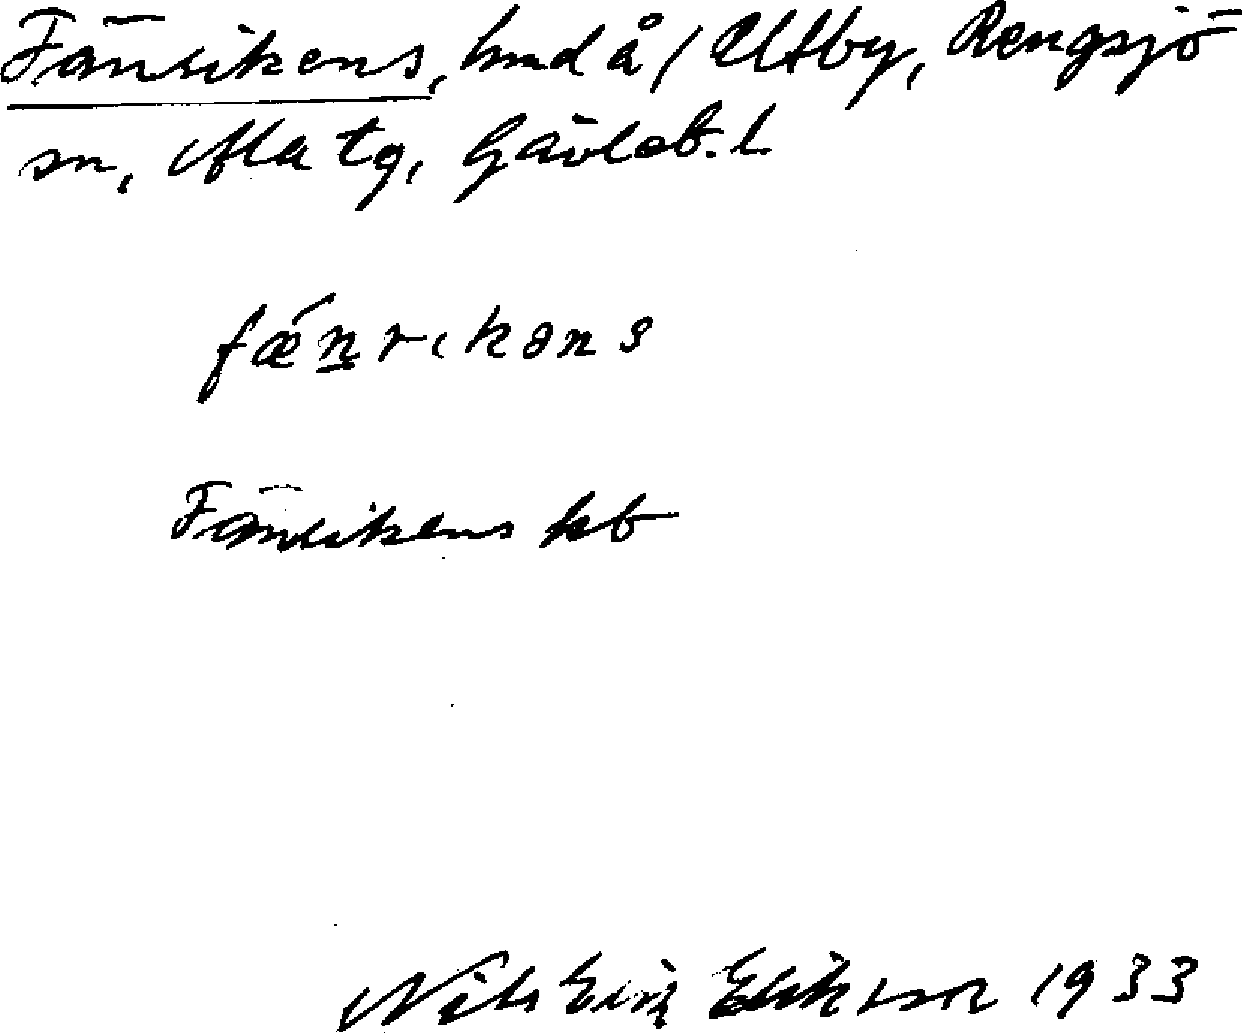 Fänrikens, hmd å / Utby, Rengsjö
sn, Ala tg, Gävleb. l
fǽn̲rikəns
Fänrikens hb
Nils Erik Eriksson 1933